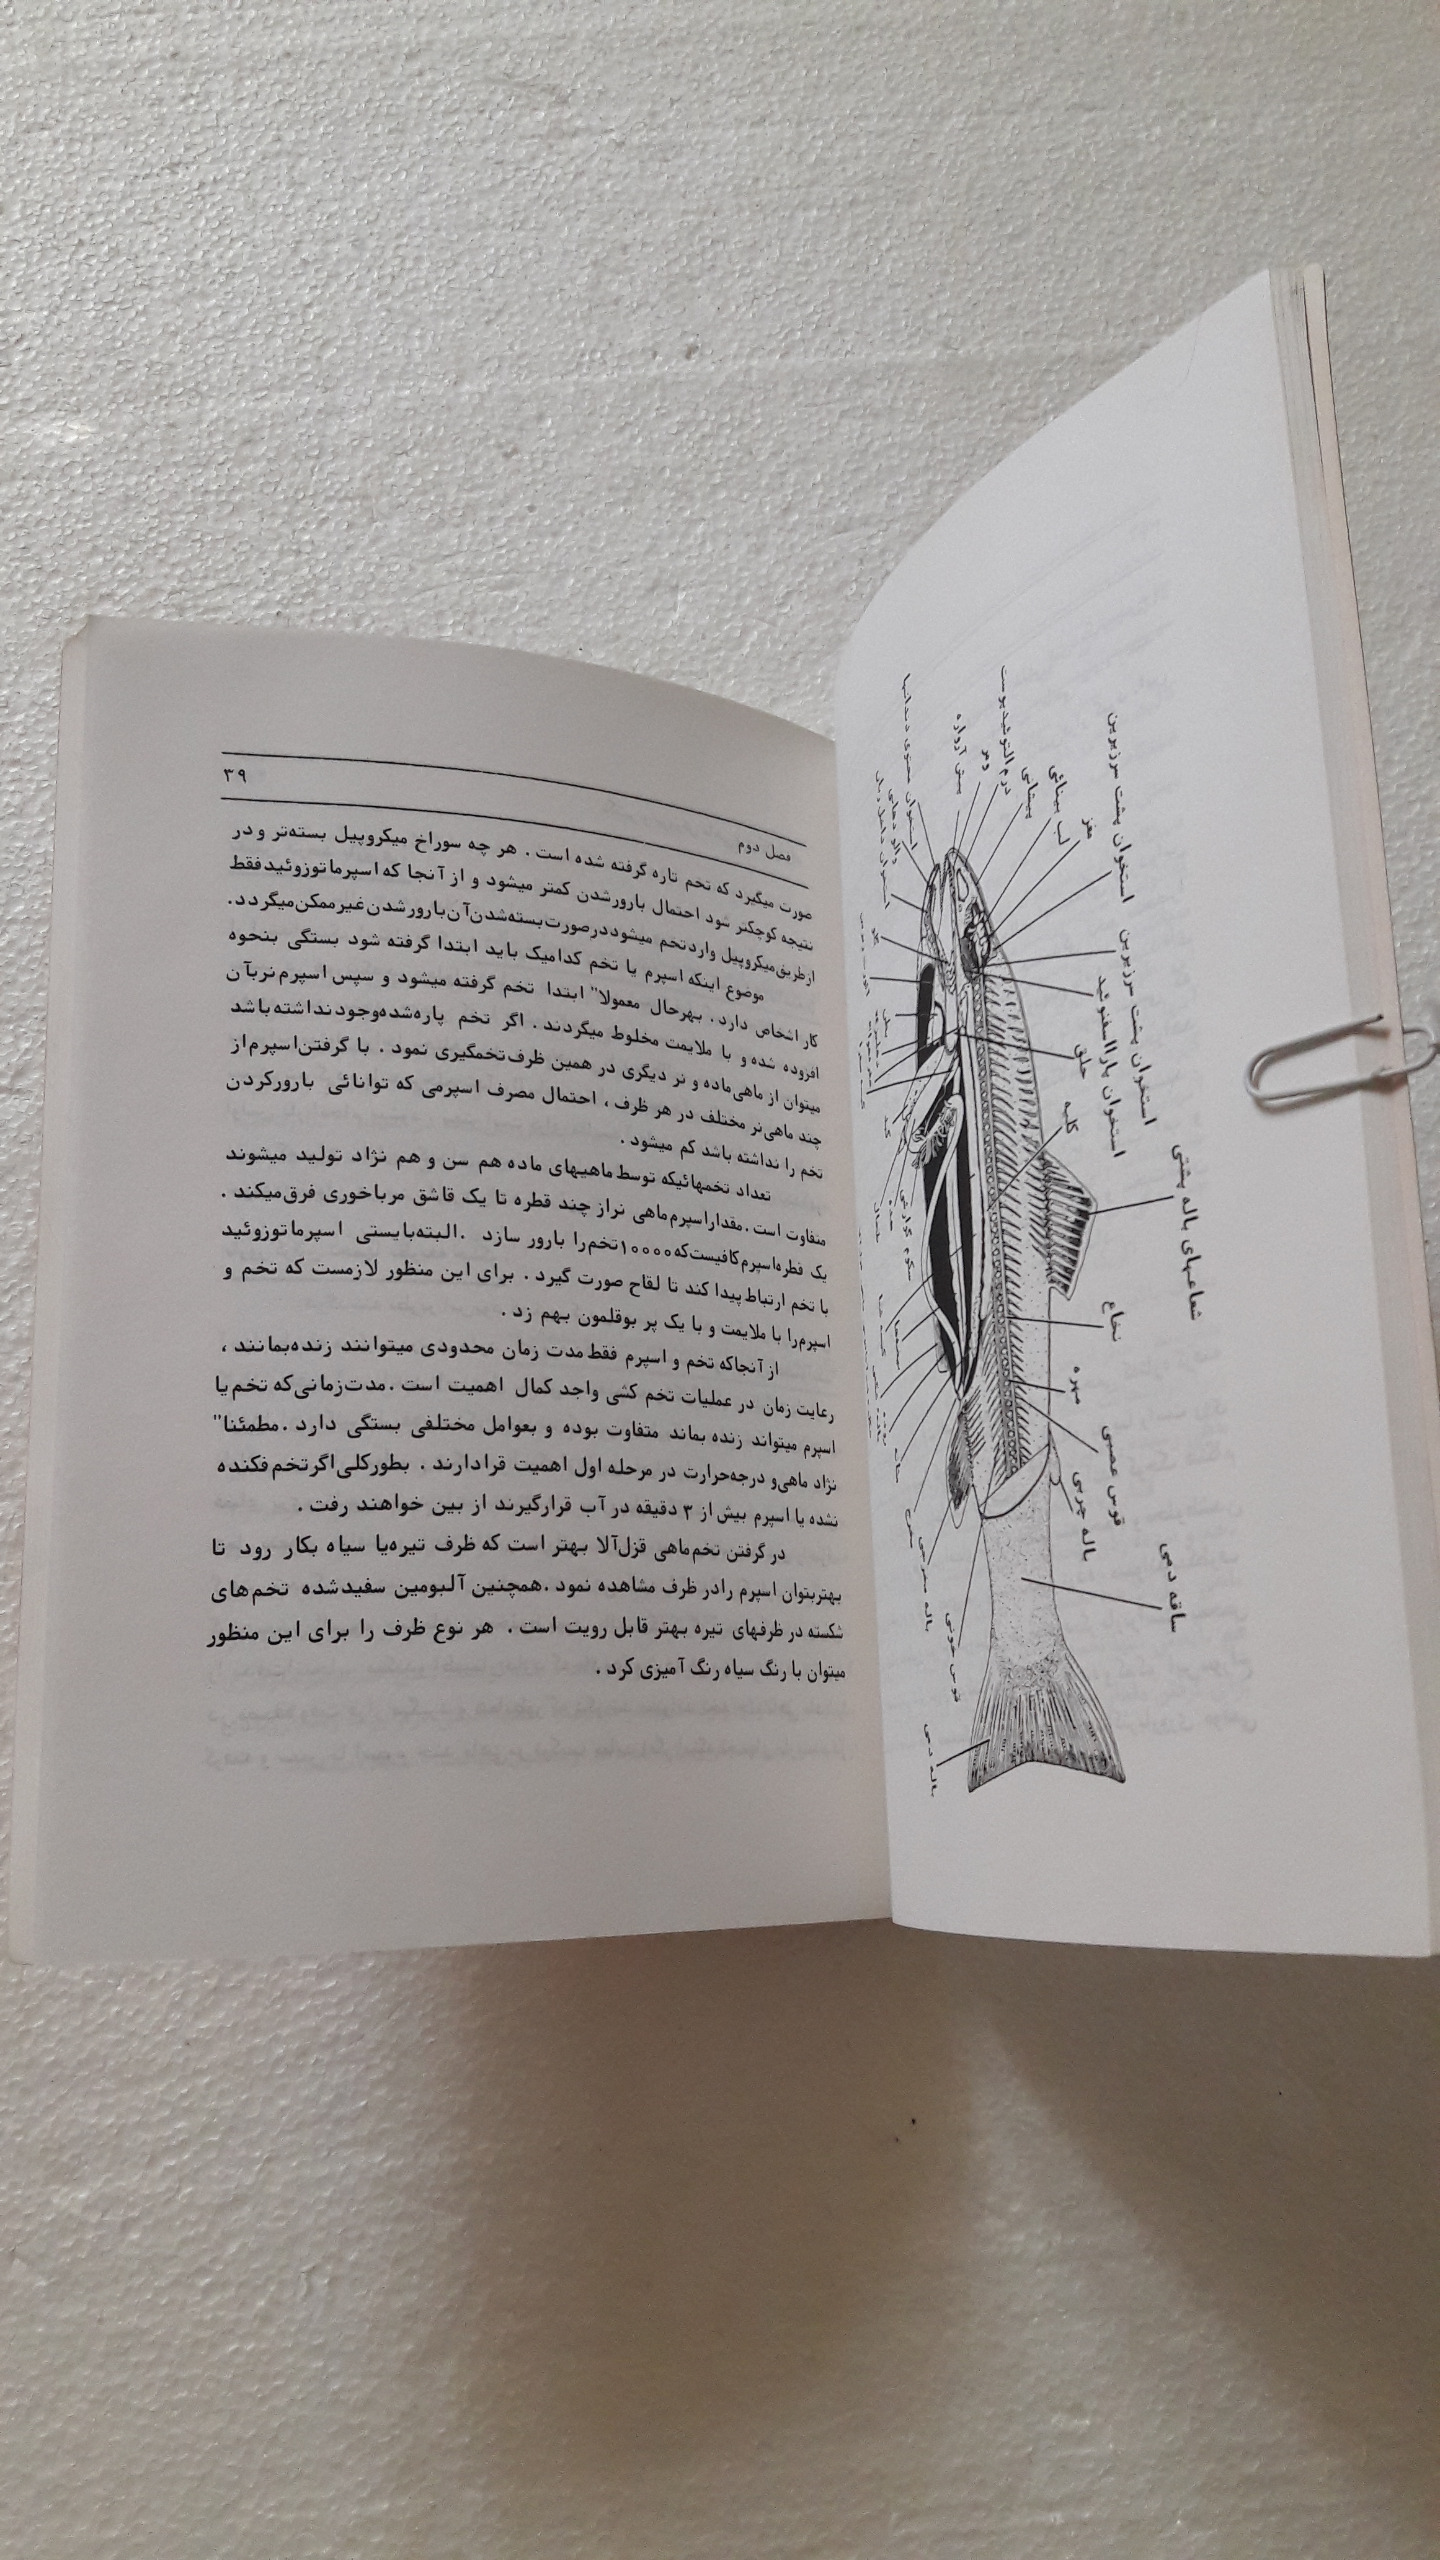 شعاعهای باله پشتی
ساقه دمی
استخوان پشت سرزیرین
استخوان پشت سرزیرین
استخوان بارااسفنوئید
نخاع
قوس عصبی
مغز
لب بینائی
حلق
کلیه
مهره
باله چربی
پیتانی
باله دمی
۳۹
فصل دوم
صورت میگیرد که تخم تازه گرفته شده است . هر چه سوراخ میکروپیل بسته‌تر و در
نتیجه کوچکتر شود احتمال بارورشدن کمتر میشود و از آنجا که اسپرماتوزوئید فقط
ازطریق میکروپیل وارد تخم میشود در صورت بسته شدن آن بارور شدن غیر ممکن میگردد.
موضوع اینکه اسپرم یا تخم کدامیک باید ابتدا گرفته شود بستگی بنحوه
کار اشخاص دارد . بهرحال معمولا" ابتدا تخم گرفته میشود و سپس اسپرم نر بآن
افزوده شده و با ملایمت مخلوط میگردند . اگر تخم پاره شده وجود نداشته باشد
میتوان از ماهی ماده و نر دیگری در همین ظرف تخمگیری نمود . با گرفتن اسپرم از
چند ماهی نر مختلف در هر ظرف ، احتمال مصرف اسپرمی که توانائی بارور کردن
تخم را نداشته باشد کم میشود .
تعداد تخمهائیکه توسط ماهیهای ماده هم سن و هم نژاد تولید میشوند
متفاوت است . مقدار اسپرم ماهی نر از چند قطره تا یک قاشق مرباخوری فرق میکند .
یک قطره اسپرم کافیست که ۱۰۰۰۰ تخم را بارور سازد . البته بایستی اسپرماتوزوئید
با تخم ارتباط پیدا کند تا لقاح صورت گیرد . برای این منظور لازمست که تخم و
اسپرم را با ملایمت و با یک پر بوقلمون بهم زد .
از آنجاکه تخم و اسپرم فقط مدت زمان محدودی میتوانند زنده بمانند ،
رعایت زمان در عملیات تخم کشی واجد کمال اهمیت است . مدت زمانی که تخم یا
اسپرم میتواند زنده بماند متفاوت بوده و بعوامل مختلفی بستگی دارد . مطمئنا"
نژاد ماهی و درجه حرارت در مرحله اول اهمیت قرار دارند . بطور کلی اگر تخم فکنده
نشده یا اسپرم بیش از ۳ دقیقه در آب قرار گیرند از بین خواهند رفت .
در گرفتن تخم ماهی قزل‌آلا بهتر است که ظرف تیره یا سیاه بکار رود تا
بهتر بتوان اسپرم را در ظرف مشاهده نمود . همچنین آلبومین سفید شده تخم های
شکسته در ظرفهای تیره بهتر قابل رویت است . هر نوع ظرف را برای این منظور
میتوان با رنگ سیاه رنگ آمیزی کرد .